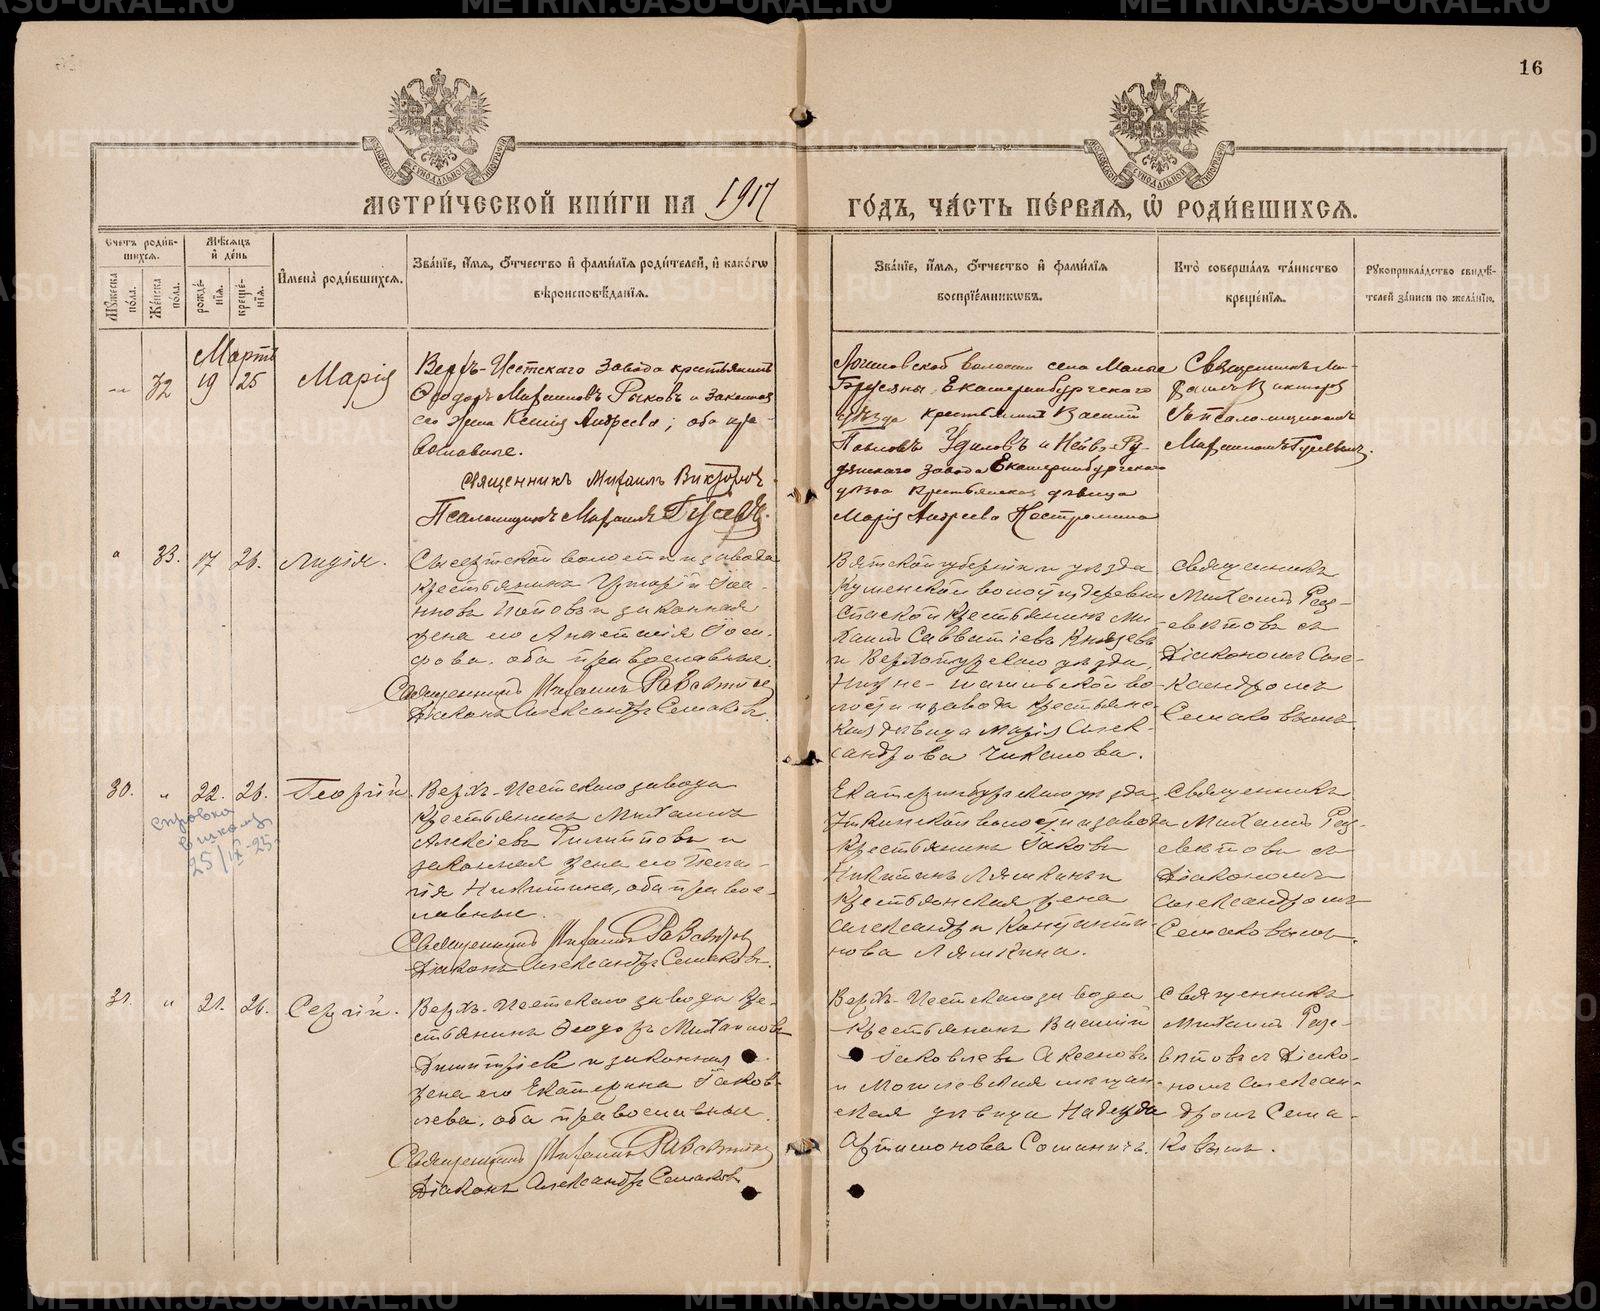 16
МОСКОВСКОЙ СУНОДАЛЬНОЙ ТИПОГРАФІИ
МОСКОВСКОЙ СУНОДАЛЬНОЙ ТИПОГРАФІИ
МЕТРИЧЕСКОЙ КНИГИ НА 1917 ГОДЪ, ЧАСТЬ ПЕРВАЯ, Ѡ РОДИВШИХСЯ.
Счетъ родив-
шихся.
Мужеска
пола.
Женска
пола.
Мѣсяцъ
и день
рожде-
нія.
креще-
нія.
Имена родившихся.
Званіе, имя, отчество и фамилія родителей, и какогѡ
вѣроисповѣданія.
Званіе, имя, отчество и фамилія
воспріемникѡвъ.
Кто совершалъ таинство
крещенія.
Рукоприкладство свидѣ-
телей записи по желанію.
Мартъ
" 32 19 25 Марія
Верхъ-Исетскаго завода крестьянинъ
Ѳеодоръ Рыковъ и законная
его жена Ксенія Андреева; оба пра-
вославные.
Священникъ Михаилъ Викторовъ
Псаломщикъ Гусевъ.
волости села Малые
Брусяны, Екатеринбургскаго
уѣзда крестьянинъ
Павловъ Удиловъ и Нейво-Ру-
дянскаго завода Екатеринбургскаго
уѣзда крестьянская дѣвица
Марія Андреева Костромина
Священникъ Ми-
хаилъ Викторовъ
съ псаломщикомъ
Гусевымъ.
" 33. 17 26. Лидія.
Сысертской волости и завода
крестьянинъ Іоан-
новъ Поповъ и законная
жена его Анастасія Іоси-
фова, оба православные.
Священникъ Михаилъ
Діаконъ Александръ Семаковъ.
Вятской губерніи и уѣзда
волости деревни
Спаской крестьянинъ Ми-
хаилъ Савватіевъ Князевъ
и Верхотурскаго уѣзда,
Нижне-Тагильской во-
лости и завода крестьянс-
кая дѣвица Марія Алек-
сандрова Чикалова.
Священникъ
Михаилъ
съ
Діакономъ Але-
ксандромъ
Семаковымъ.
30. " 22. 26. Георгій.
справка
в школу
25/IX-25.
Верхъ-Исетскаго завода
крестьянинъ Михаилъ
Алексіевъ Филипповъ и
законная жена его Пела-
гія Никитина, оба правос-
лавные.
Священникъ Михаилъ
Діаконъ Александръ Семаковъ.
Екатеринбургскаго уѣзда,
волости и завода
крестьянинъ Іаковъ
Никитинъ Ляшкинъ и
крестьянская жена
Александра Константи-
нова Ляшкина.
Священникъ
Михаилъ
съ
Діакономъ
Александромъ
Семаковымъ.
31. " 21. 26. Сергій.
Верхъ-Исетскаго завода кре-
стьянинъ Ѳеодоръ Михаиловъ
Димитріевъ и законная
жена его Екатерина Іаков-
лева, оба православные.
Священникъ Михаилъ
Діаконъ Александръ Семаковъ
Верхъ-Исетскаго завода
крестьянинъ Василій
Іаковлевъ Аксеновъ
и Могилевская мѣщан-
ская дѣвица Надежда
Артамонова
Священникъ
Михаилъ
съ Діако-
номъ Алексан-
дромъ Сема-
ковымъ.
METRIKI.GASO-URAL.RU